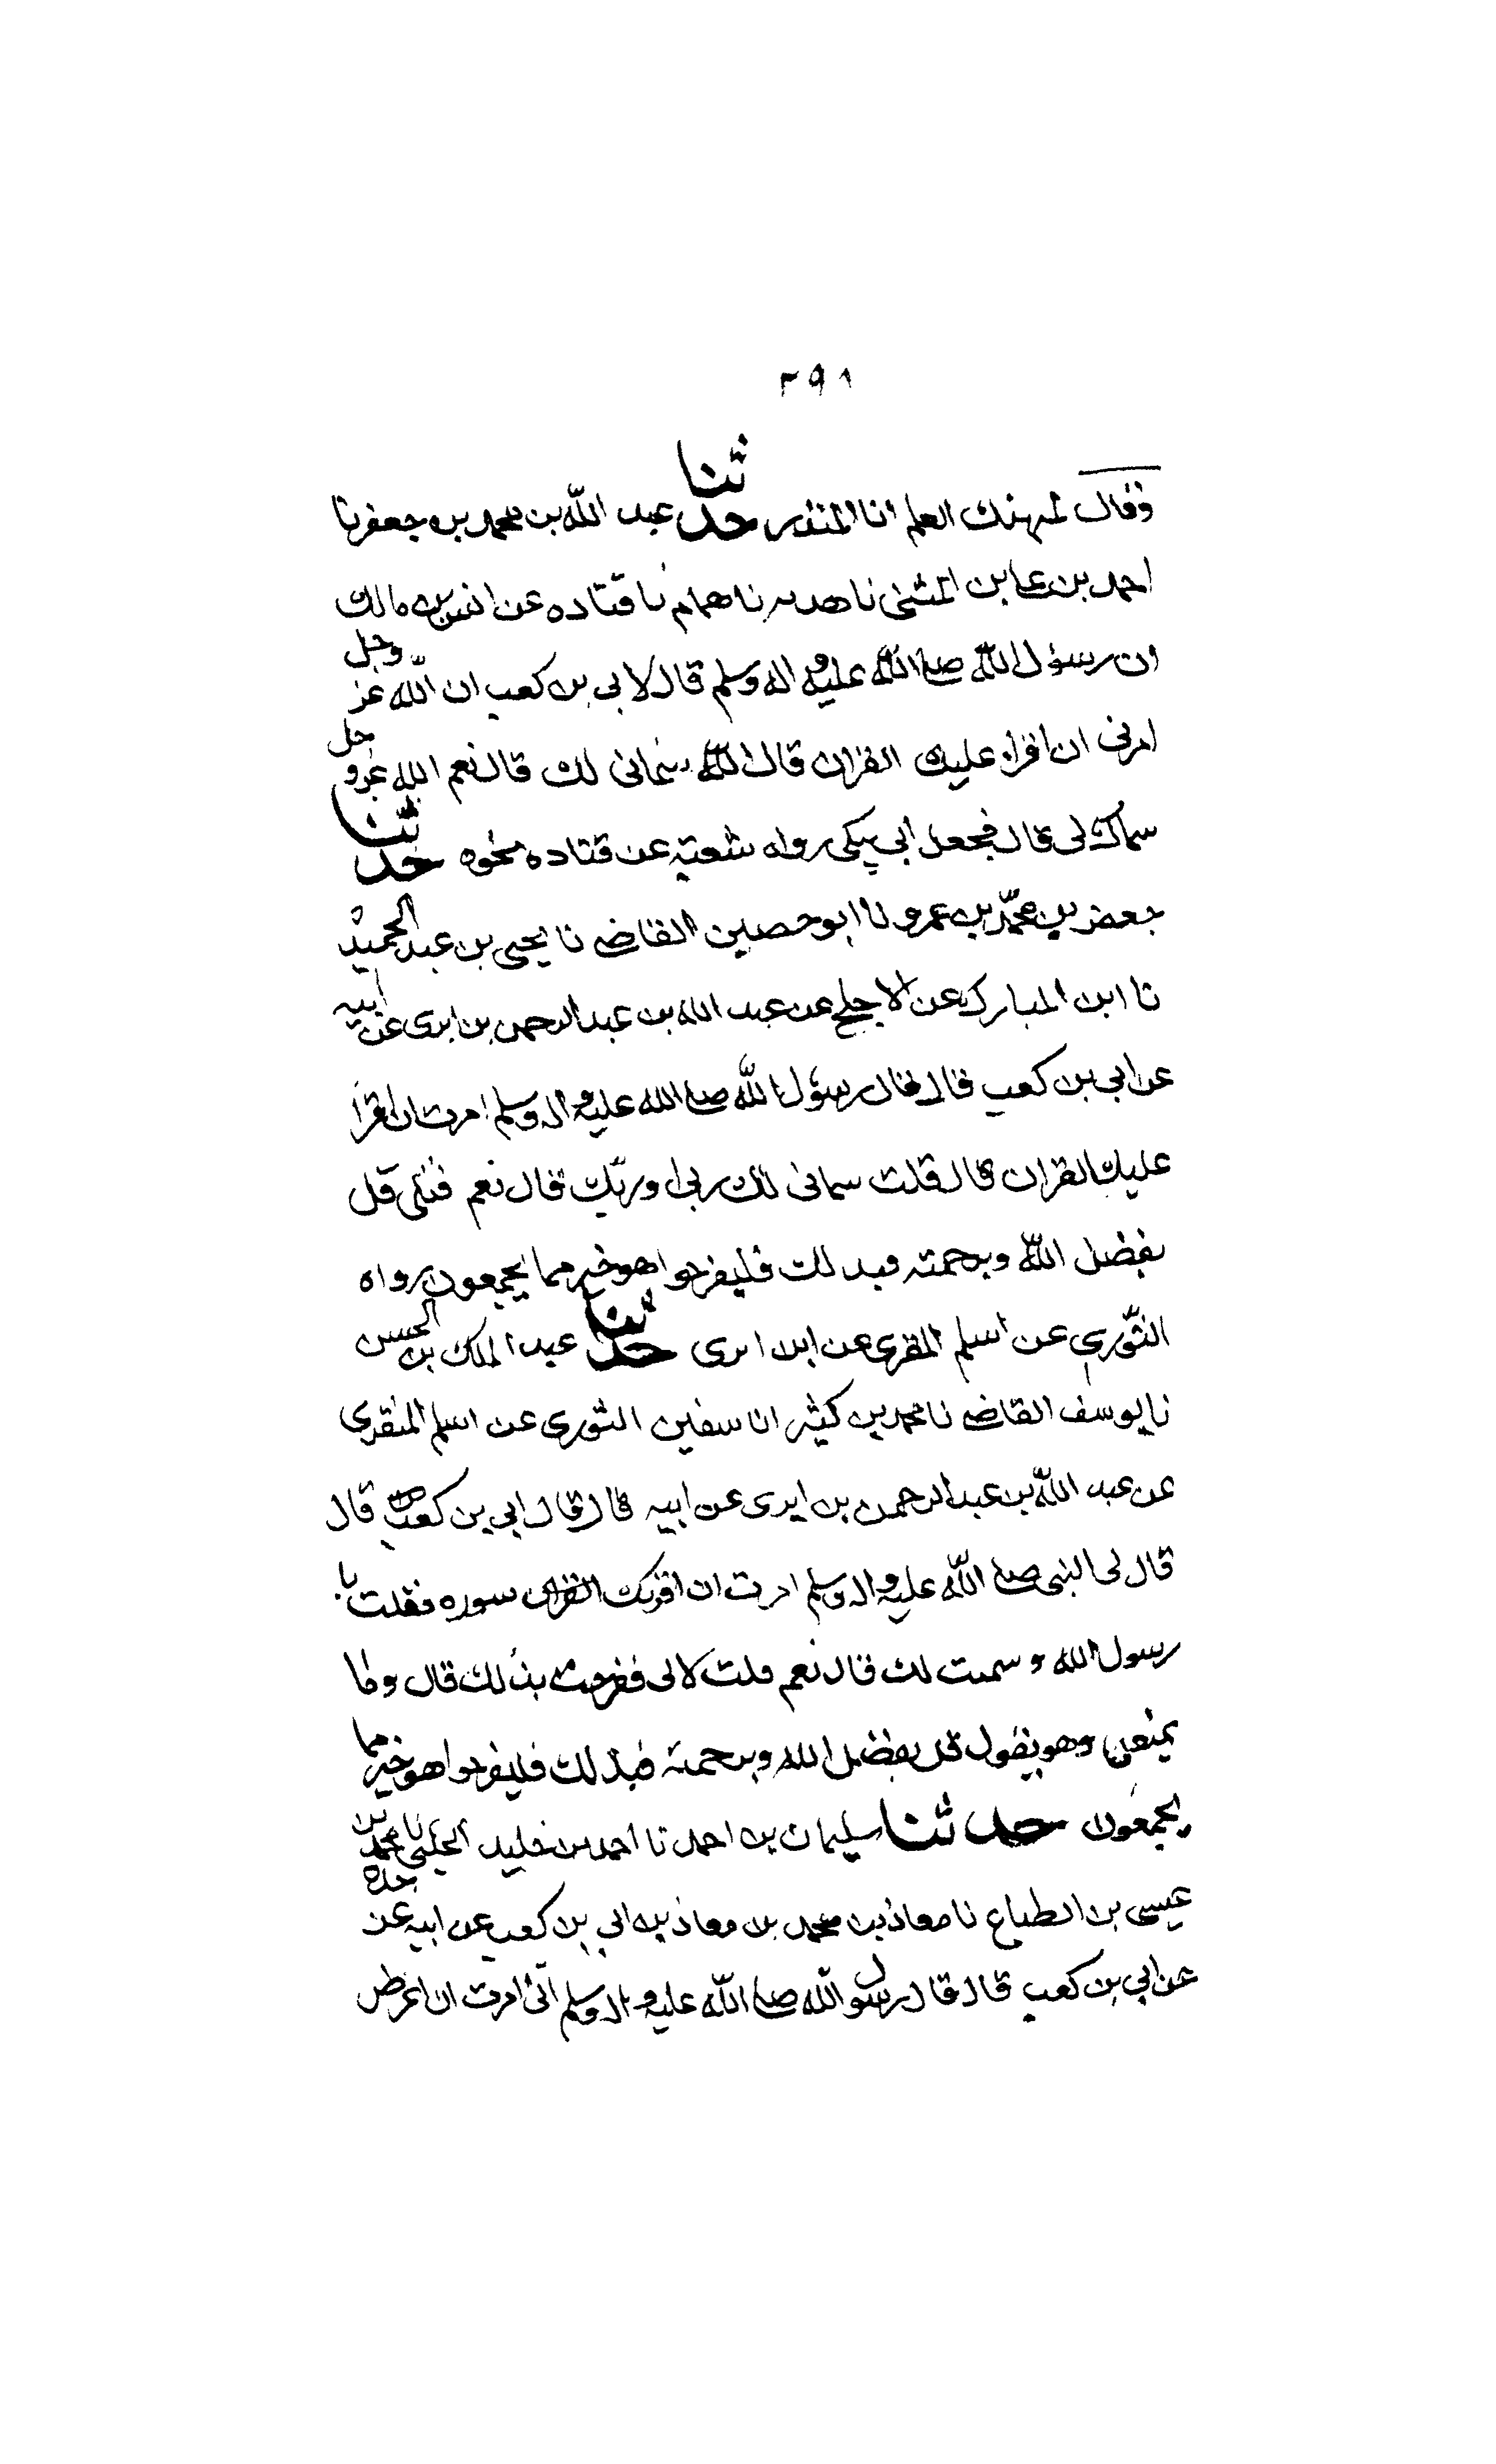 ٣٩٨
وقال ليهنك العلم ابا المنذر حدثنا عبد الله بن محمد بن جعفر نا
احمد بن علي بن المثنى نا هدبه نا همام نا قتاده عن انس بن مالك
ان رسول الله صلى الله عليه و اله وسلم قال لابي بن كعب ان الله عز وجل
امرني ان اقراء عليك القران قال الله سماني لك قال نعم الله عز و جل
سماك لي قال فجعل ابي يبكي رواه شعبة عن قتاده نحوه حدثنا
جعفر بن محمد بن عمرو نا ابو حصين القاضي نا يحيى بن عبد الحميد
نا ابن المبارك عن الاجلح عن عبد الله بن عبد الرحمن بن ابزى عن ابيه
عن ابي بن كعب قال قال رسول الله صلى الله عليه و اله وسلم امرت ان اقرأ
عليك القران قال قلت سماني لك ربي او ربك قال نعم فتلى قل
بفضل الله وبرحمته فبذلك فليفرحوا هو خير مما يجمعون رواه
الثوري عن اسلم المقري عن ابن ابزى حدثنا عبد الملك بن الحسن
نا يوسف القاضي نا محمد بن كثير انا سفين الثوري عن اسلم المنقري
عن عبد الله بن عبد الرحمن بن ابزى عن ابيه قال قال ابي بن كعب قال
قال لي النبي صلى الله عليه و اله وسلم امرت ان اقرئك القران سوره فقلت يا
رسول الله و سميت لك قال نعم قلت لابي ففرحت بذلك قال وما
يمنعني وهو يقول قل بفضل الله وبرحمته فبذلك فليفرحوا هو خير مما
يجمعون حدثنا سليمان بن احمد نا احمد بن خليد الحلبي نا محمد بن
عيسى بن الطباع نا معاذ بن محمد بن معاذ بن ابي بن كعب عن ابيه عن جده
عن ابي بن كعب قال قال رسول الله صلى الله عليه و اله وسلم اني امرت ان اعرض